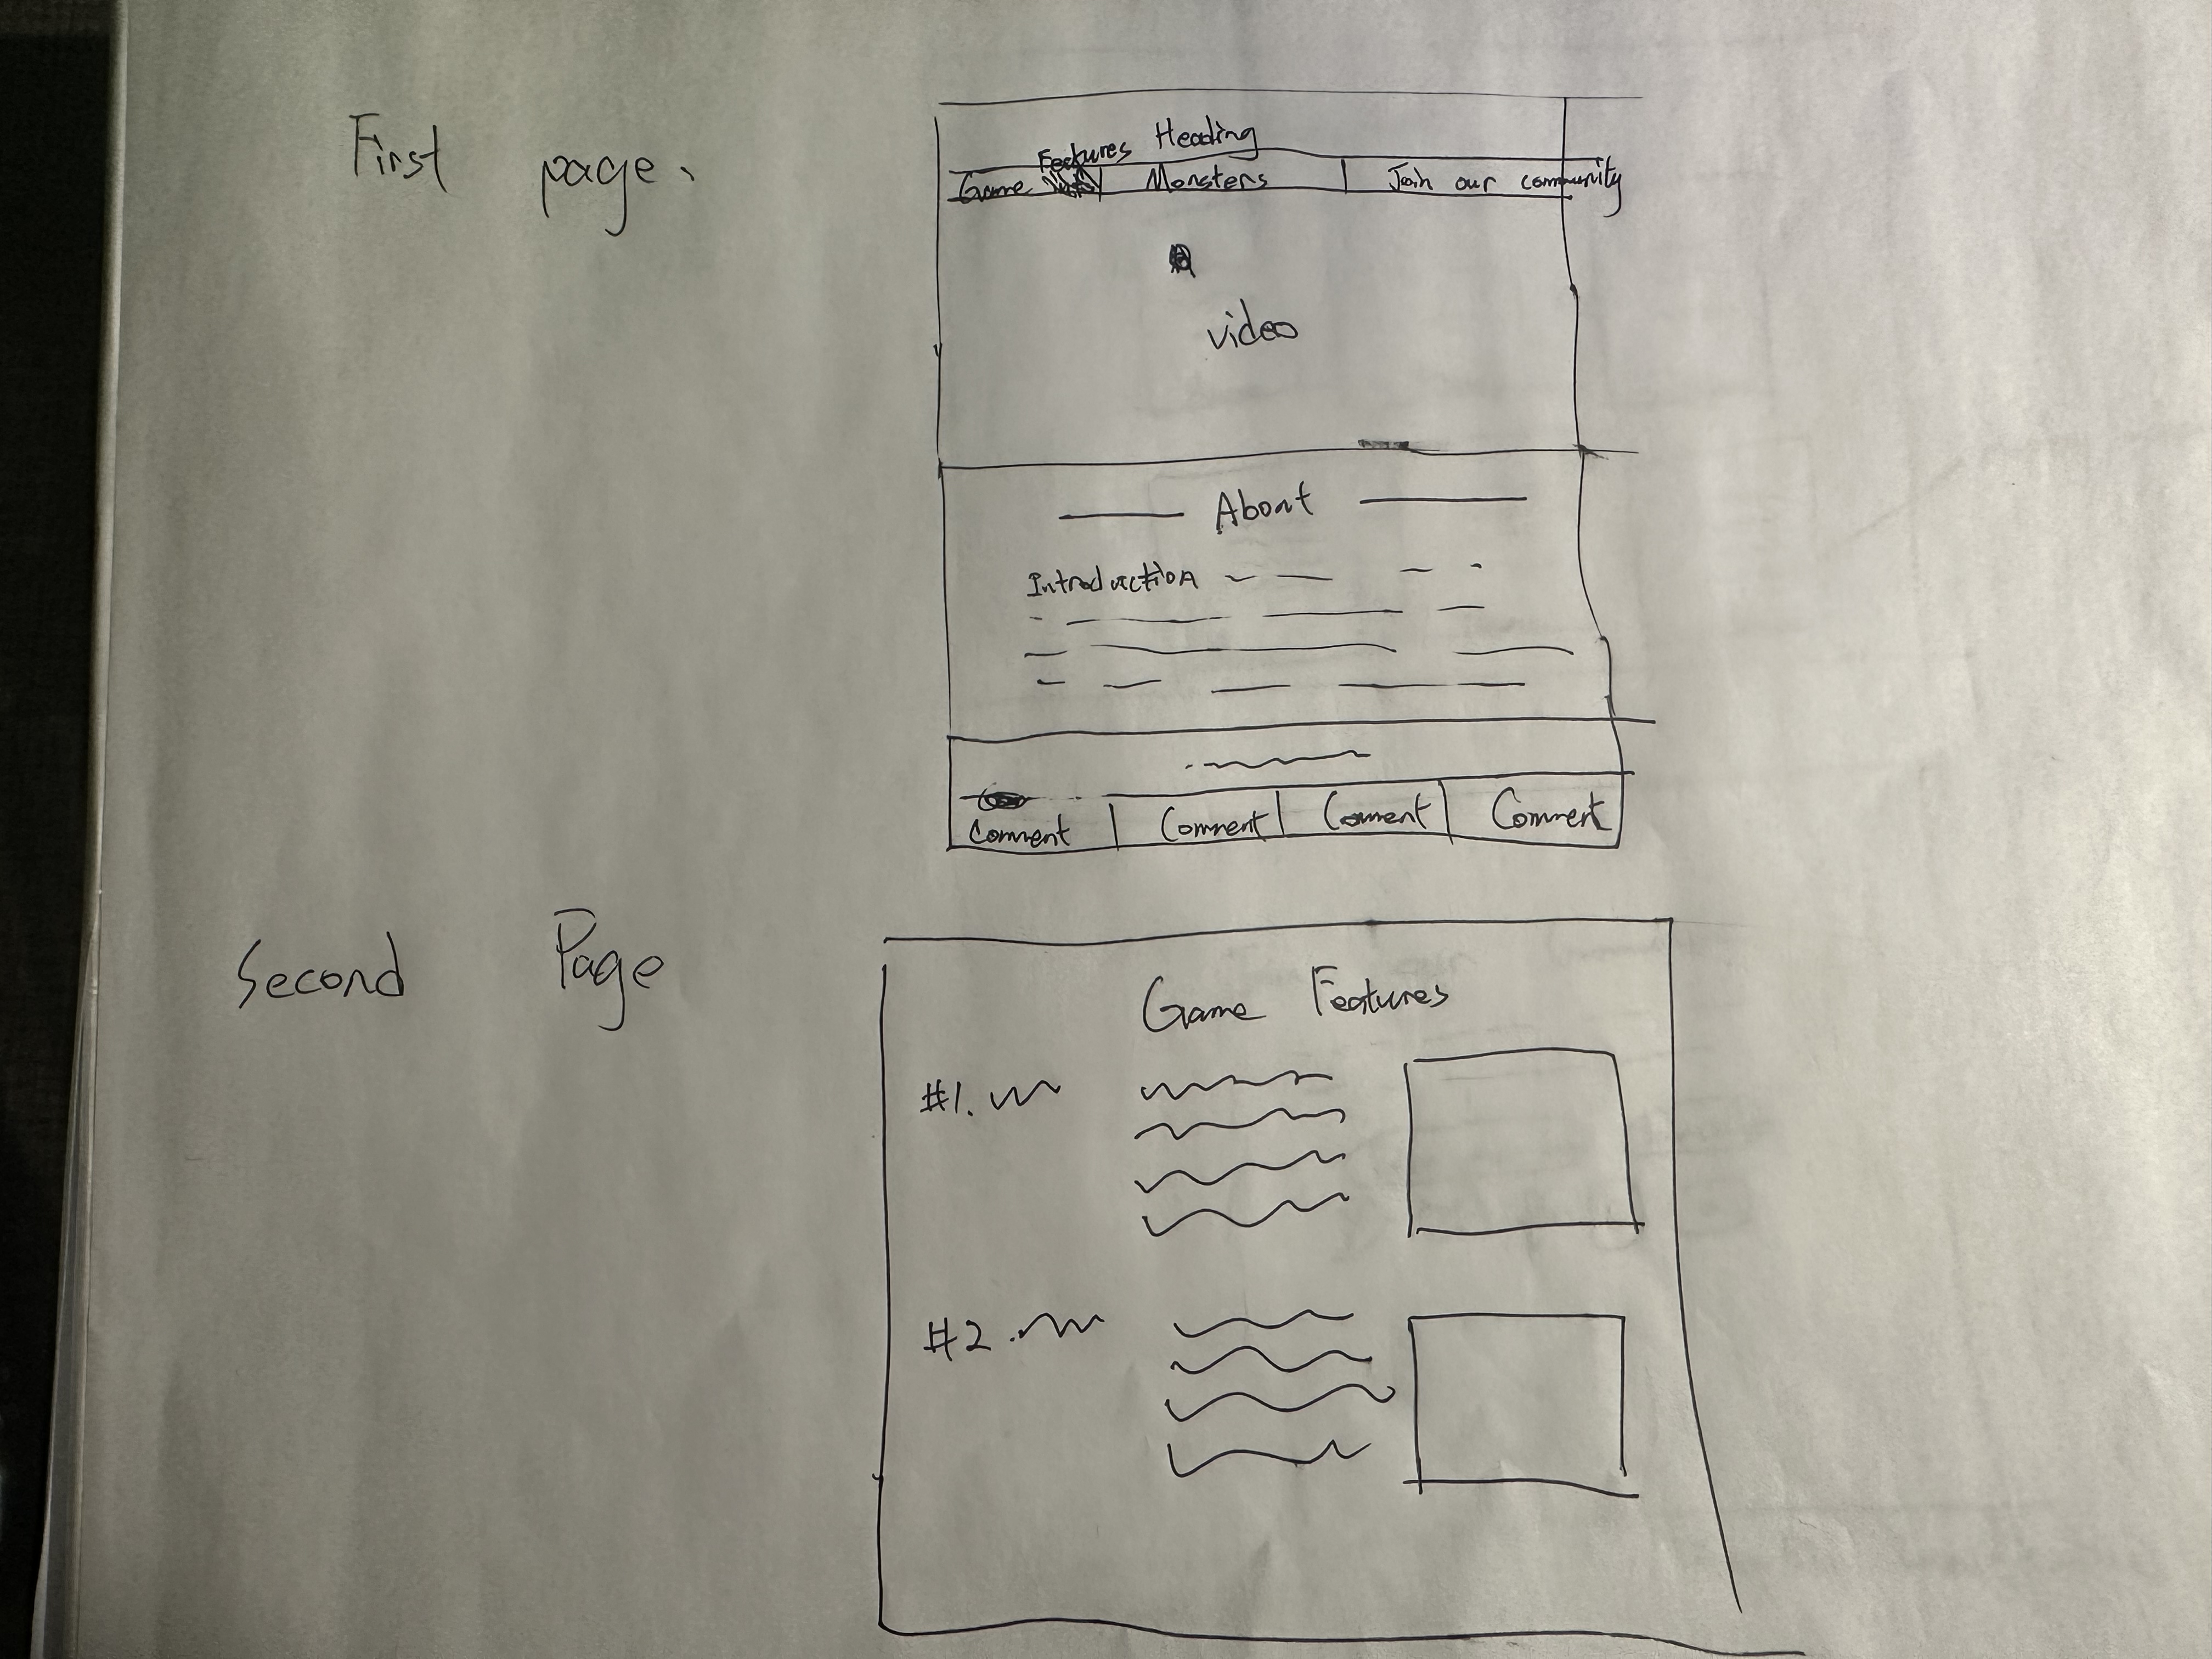 First page.
Heading
Features
Game
Monsters
Join our community
video
About
Introduction
Comment
Comment
Comment
Comment
Second Page
Game Features
#1.
#2.